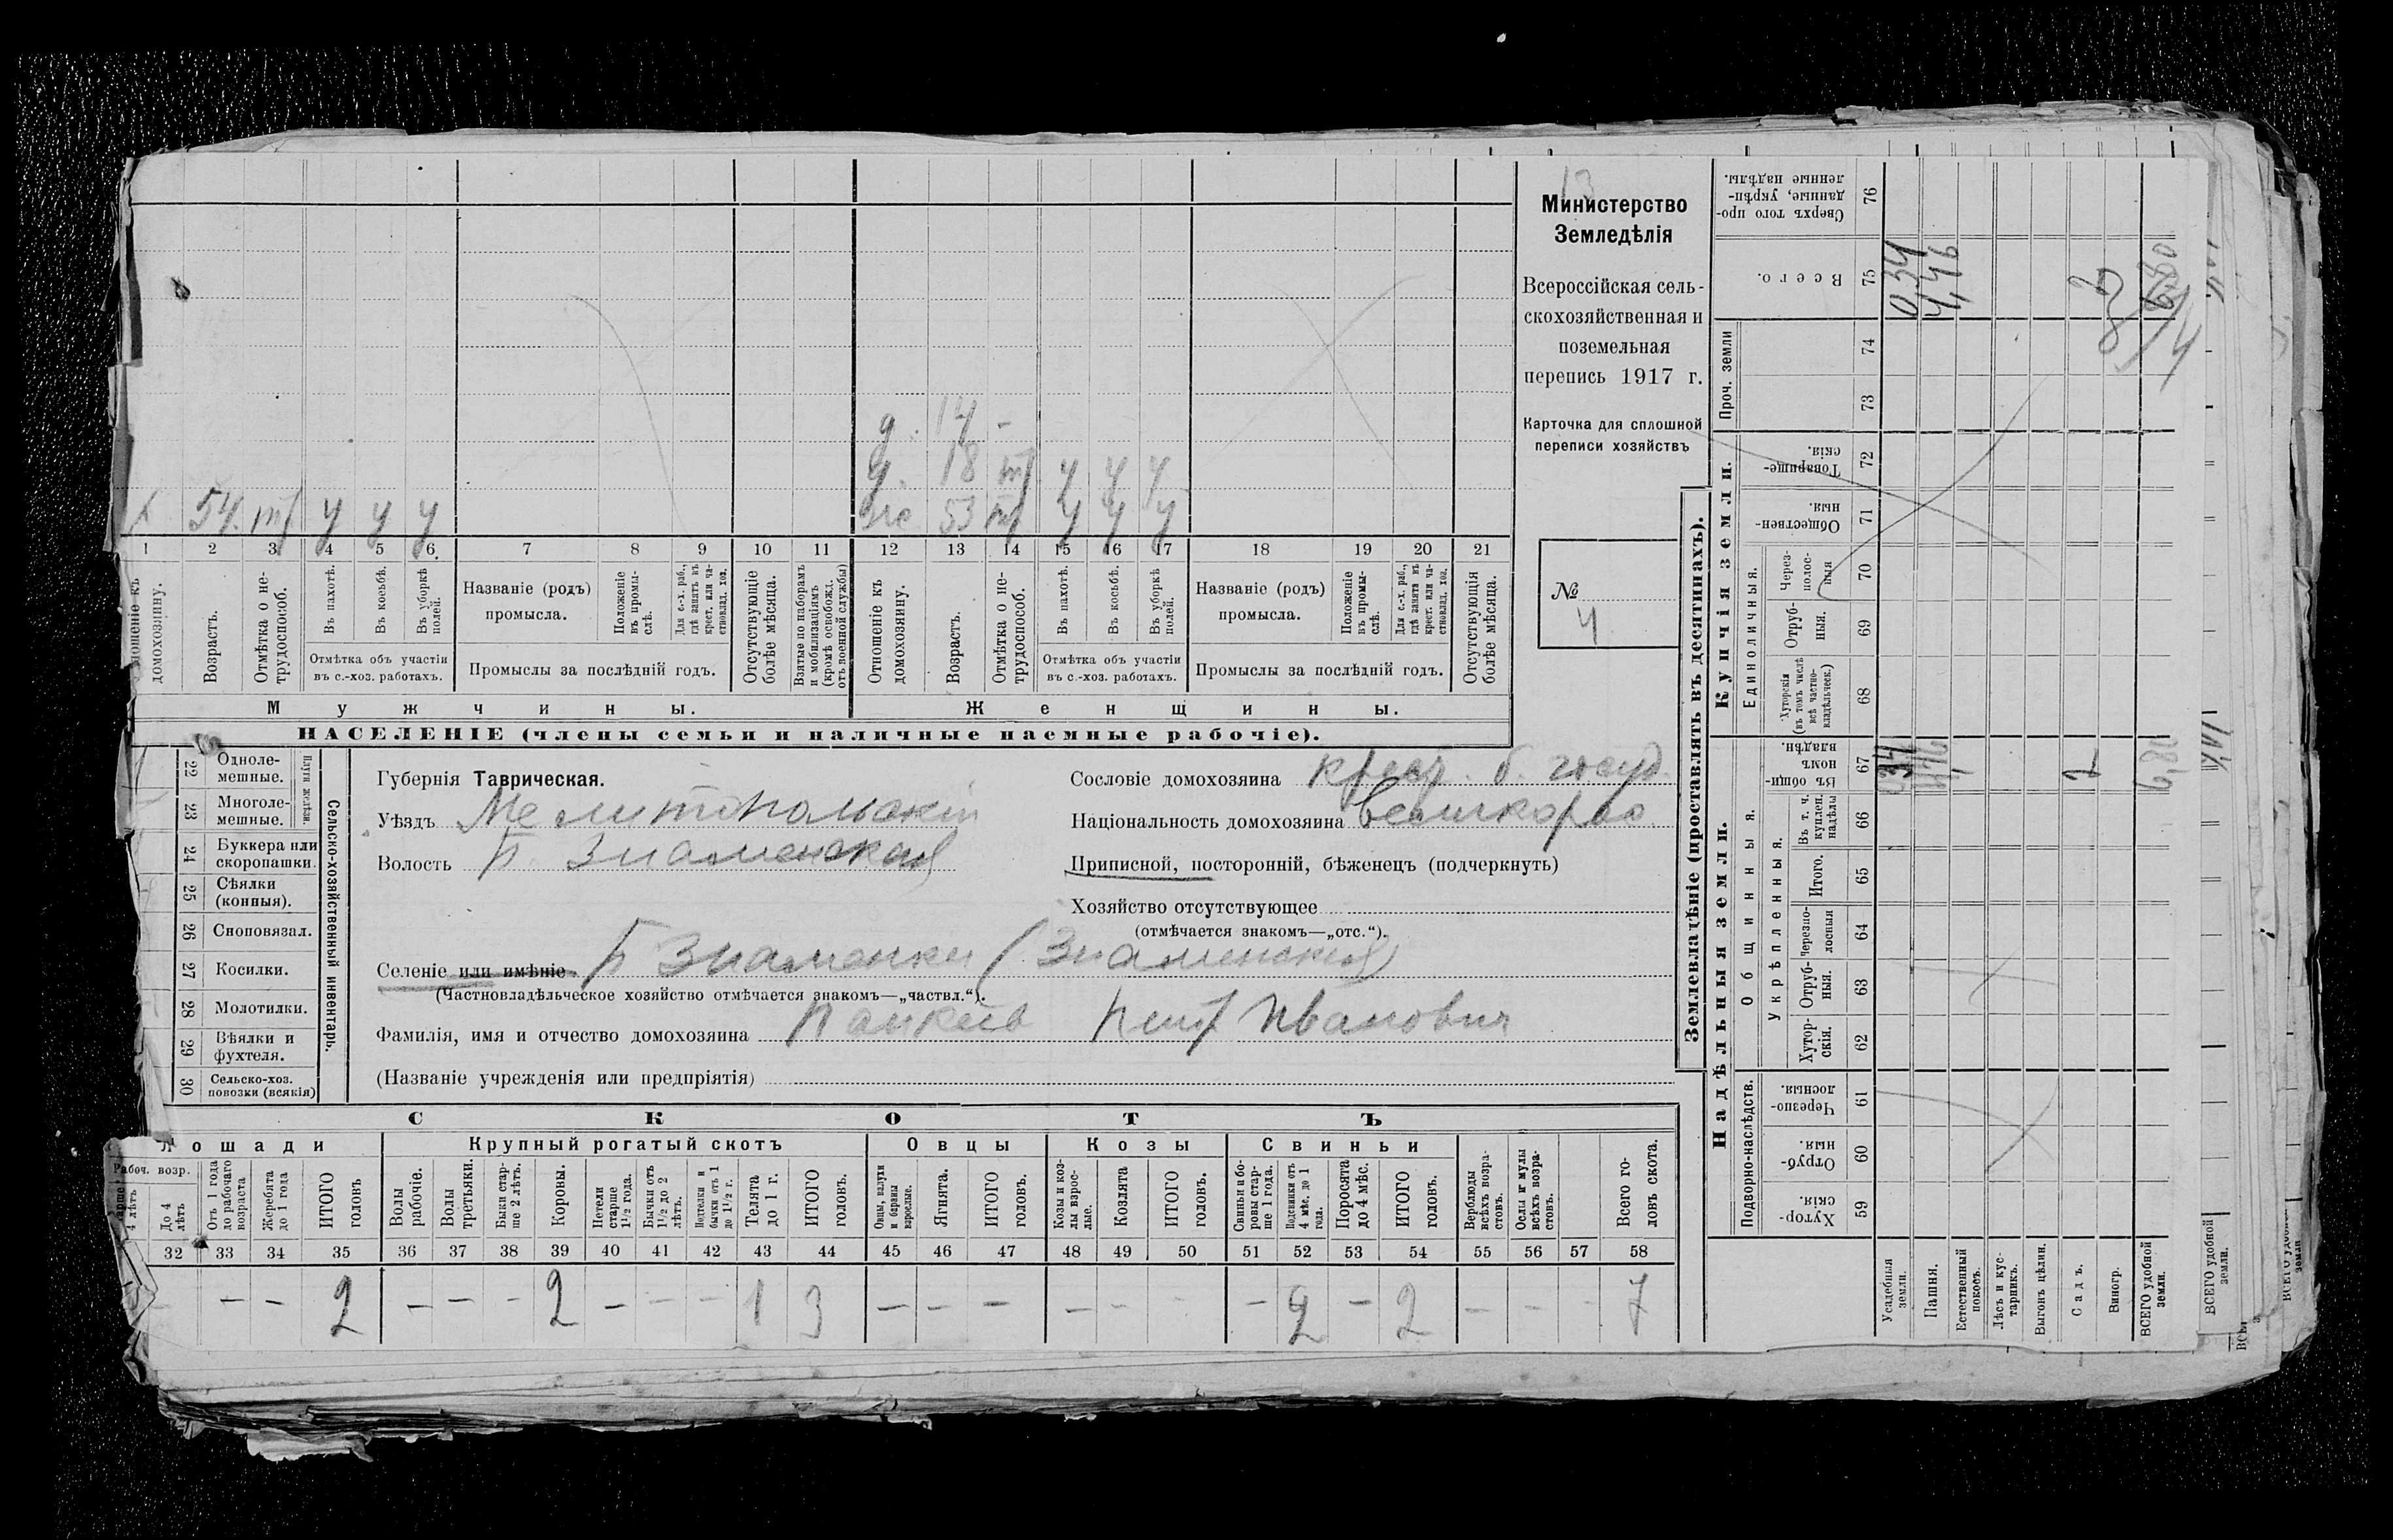 13
Министерство
Земледѣлія
Всероссійская сель-
скохозяйственная и
поземельная
перепись 1917 г.
Карточка для сплошной
переписи хозяйствъ
№
4
д. 14 -
д. 18 т у у у
х 54. т у у у жс 53 т у у у
1 2 3 4 5 6 7 8 9 10 11 12 13 14 15 16 17 18 19 20 21
домохозяину.
Возрастъ.
Отмѣтка о не-
трудоспособ.
Въ пахотѣ.
Въ косьбѣ.
Въ уборкѣ
полей.
Отмѣтка объ участіи
въ с.-хоз. работахъ.
Названіе (родъ)
промысла.
Положеніе
въ промы-
слѣ.
Для с.-х. раб.,
гдѣ занятъ въ
крест. или ча-
стновлад. хоз.
Промыслы за послѣдній годъ.
Отсутствующіе
болѣе мѣсяца.
Взятые по наборамъ
и мобилизаціямъ
(кромѣ освобожд.
отъ военной службы)
Отношеніе къ
домохозяину.
Возрастъ.
Отмѣтка о не-
трудоспособ.
Въ пахотѣ.
Въ косьбѣ.
Въ уборкѣ
полей.
Отмѣтка объ участіи
въ с.-хоз. работахъ.
Названіе (родъ)
промысла.
Положеніе
въ промы-
слѣ.
Для с.-х. раб.,
гдѣ занята въ
крест. или ча-
стновлад. хоз.
Промыслы за послѣдній годъ.
Отсутствующія
болѣе мѣсяца.
Мужчины.
Женщины.
НАСЕЛЕНІЕ (члены семьи и наличные наемные рабочіе).
22 Одноле-
мешные.
23 Многоле-
мешные.
Плуги желѣзн.
24 Буккера или
скоропашки.
25 Сѣялки
(конныя).
26 Сноповязал.
27 Косилки.
28 Молотилки.
29 Вѣялки и
фухтеля.
30 Сельско-хоз.
повозки (всякія)
Сельско-хозяйственный инвентарь.
Губернія Таврическая.
Уѣздъ Мелитопольскій
Волость Б. Знаменская
Сословіе домохозяина крест. б. госуд.
Національность домохозяина великоросс
Приписной, посторонній, бѣженецъ (подчеркнуть)
Хозяйство отсутствующее
(отмѣчается знакомъ—„отс.“).
Селеніе или имѣніе Б Знаменки (Знаменская)
(Частновладѣльческое хозяйство отмѣчается знакомъ—„частвл.“).
Фамилія, имя и отчество домохозяина Панкеев Петр Иванович
(Названіе учрежденія или предпріятія)
СКОТЪ
Лошади
Рабоч. возр.
4 лѣтъ
До 4
лѣтъ
Отъ 1 года
до рабочаго
возраста
Жеребята
до 1 года
ИТОГО
головъ
Крупный рогатый скотъ
Волы
рабочіе.
Волы
третьяки.
Быки стар-
ше 2 лѣтъ.
Коровы.
Нетели
старше
1½ года.
Бычки отъ
1½ до 2
лѣтъ.
Подтелки и
бычки отъ 1
до 1½ г.
Телята
до 1 г.
ИТОГО
головъ.
Овцы
Овцы, валухи
и бараны
взрослые.
Ягнята.
ИТОГО
головъ.
Козы
Козы и коз-
лы взрос-
лые.
Козлята
ИТОГО
головъ.
Свиньи
Свиньи и бо-
ровы стар-
ше 1 года.
Подсвинки отъ
4 мѣс. до 1
года.
Поросята
до 4 мѣс.
ИТОГО
головъ.
Верблюды
всѣхъ возра-
стовъ.
Ослы и мулы
всѣхъ возра-
стовъ.
Всего го-
ловъ скота.
32 33 34 35 36 37 38 39 40 41 42 43 44 45 46 47 48 49 50 51 52 53 54 55 56 57 58
— — 2 — — — 2 — — — 1 3 — — — — — — — 2 — 2 — — — 7
Землевладѣніе (проставлять въ десятинахъ).
Надѣльныя земли.
Подворно-наслѣдств.
Хутор-
скія.
59
Отруб-
ныя.
60
Черезпо-
лосныя
61
Общинныя.
Укрѣпленныя.
Хутор-
скія.
62
Отруб-
ныя.
63
Черезпо-
лосныя
64
Итого.
65
Въ т. ч.
куплен.
надѣлы
66
Въ общи-
номъ
владѣн.
67
Купчія земли.
Единоличныя.
Хуторскія
(въ томъ числѣ
всѣ частно-
владѣльческ.)
68
Отруб-
ныя.
69
Через-
полос-
ныя
70
Обществен-
ныя.
71
Товарище-
скія.
72
Проч. земли
73 74
Всего.
75
Сверхъ того про-
данные, укрѣп-
ленные надѣлы.
76
Усадебныя
земли. 0,34 0,34
Пашня. 4,46 4,46
Естественный
покосъ.
Лѣсъ и кус-
тарникъ.
Выгонъ цѣлин.
Садъ. 2 2
Виногр.
ВСЕГО удобной
земли. 6,80 6,80
ВСЕГО удобной
земли.